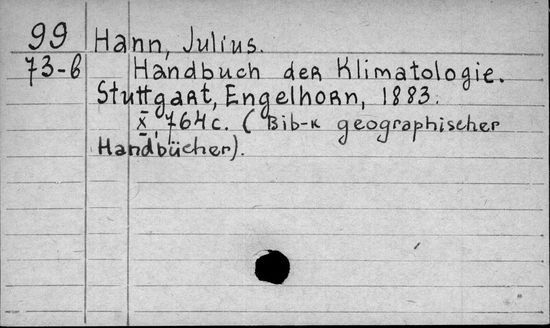 99 Hann, Julius.
73-6 Handbuch der Klimatologie.
Stuttgart, Engelhorn, 1883.
X, 764 c. (Bib-k geographischer
Handbücher).